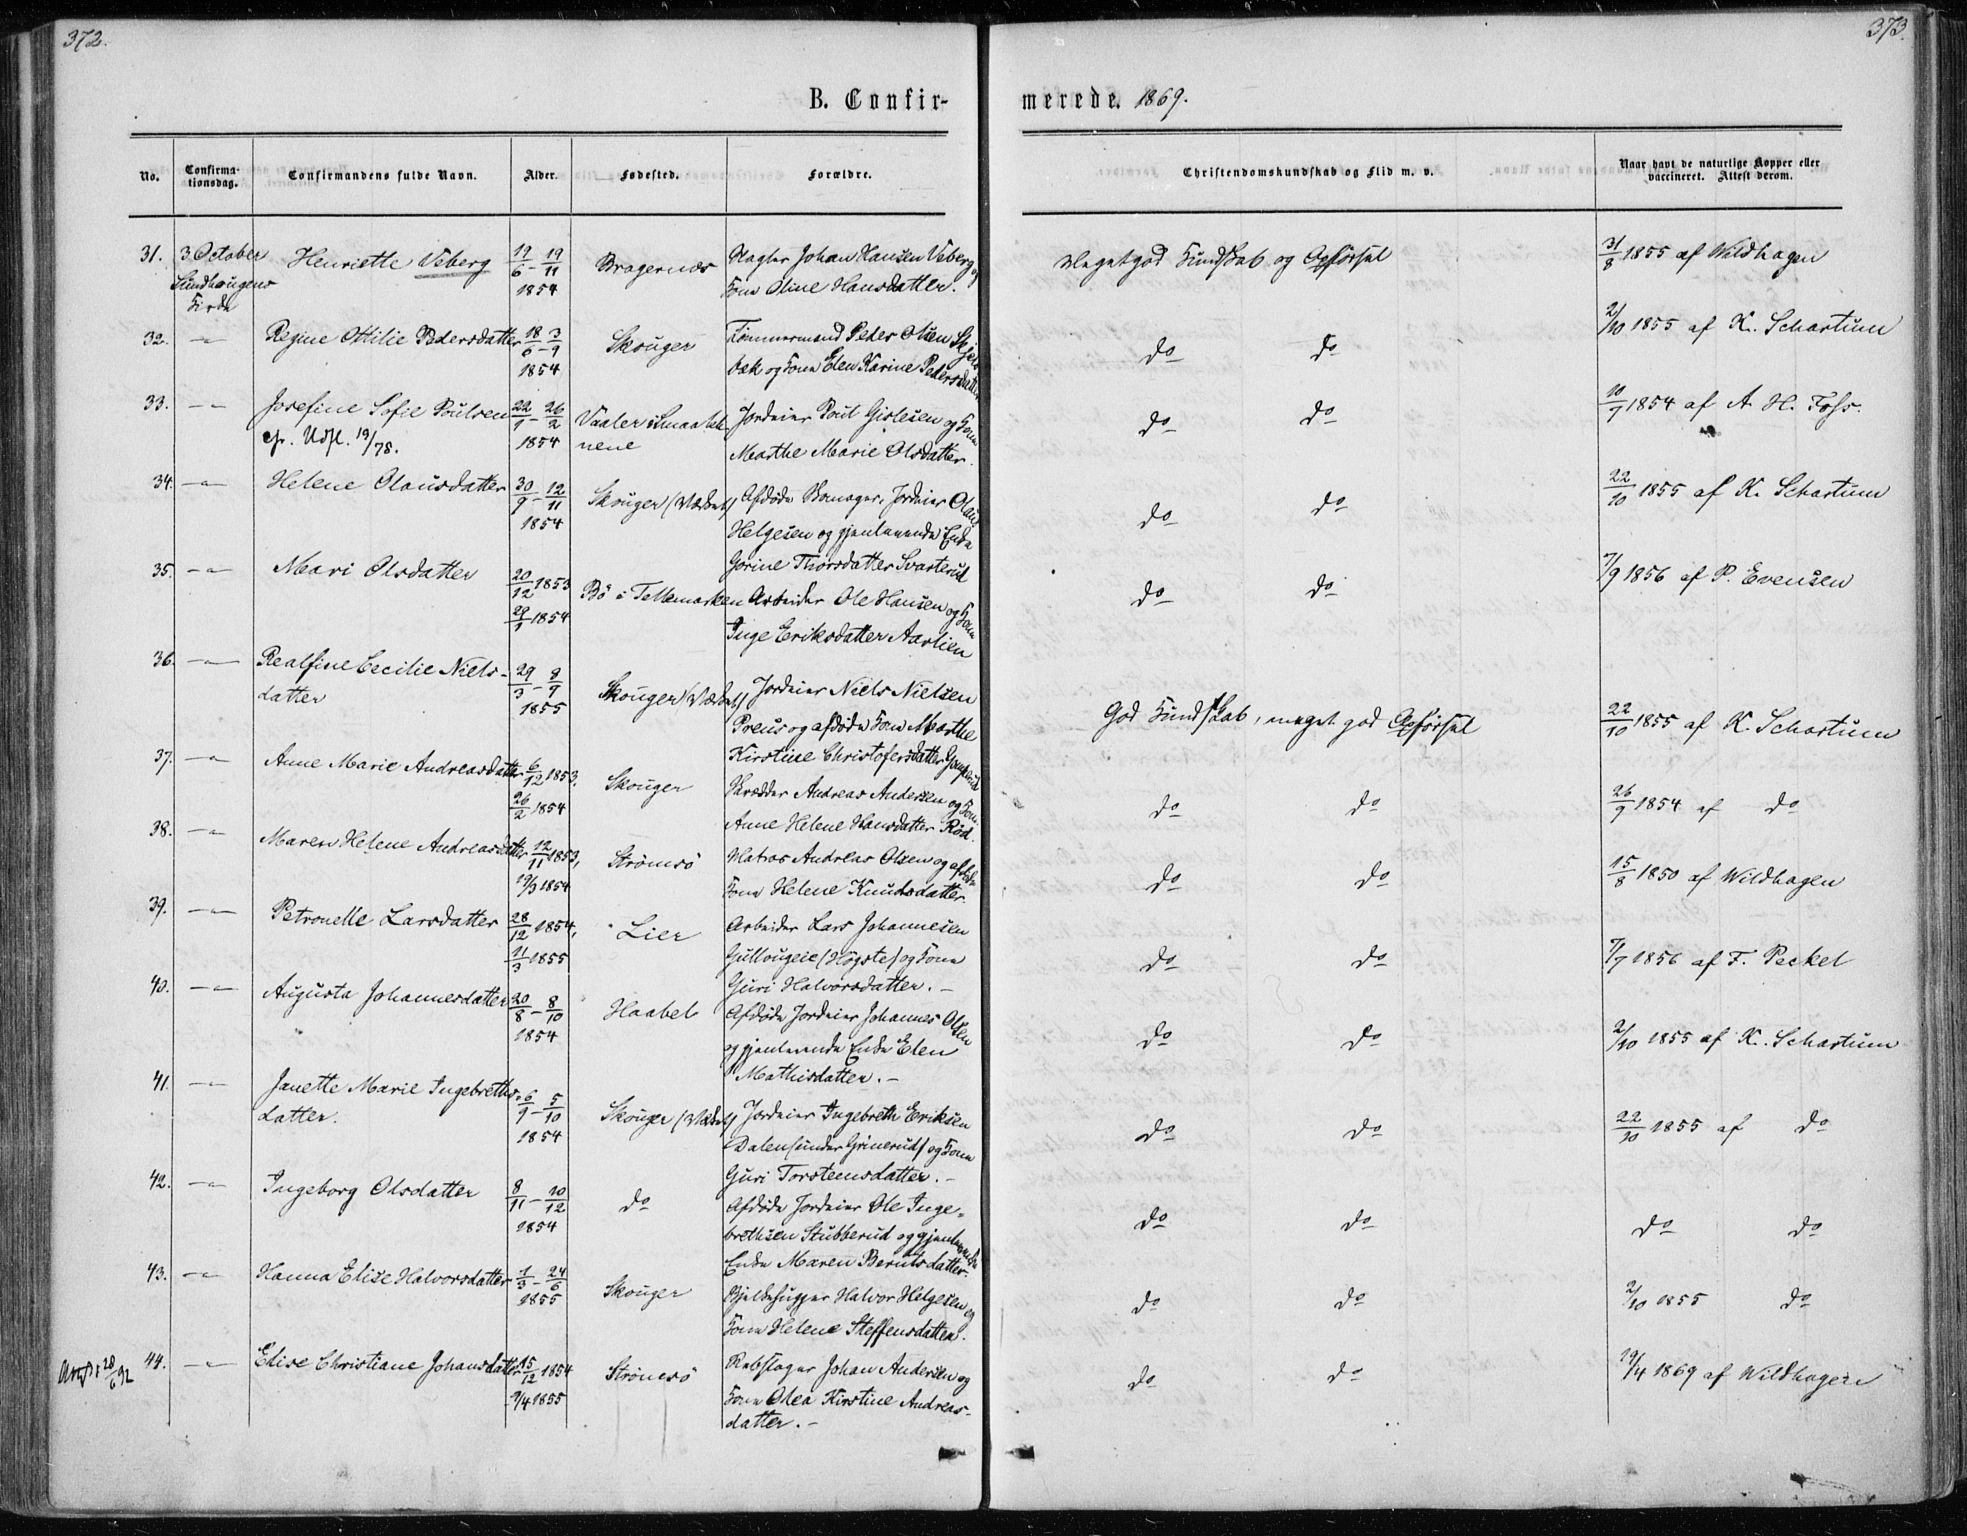 372.
373.
B. Confirmerede. 1869.
No.
Confirma-
tionsdag.
Confirmandens fulde Navn.
Alder.
Fødested.
Forældre.
Christendomskundskab og Flid m. v.
Naar havt de naturlige Kopper eller
vaccineret. Attest derom.
31. 3 October Henriette Viberg 19/6 - 19/11 Bragernæs Johan Hansen Viberg og Megetgod Kundskab og Opførsel 31/8 1855 af Wildhagen
Kirke 1854 Kone Oline Hansdatter.
32. -"- Regine Ottilie Pedersdatter 18/6 - 3/9 Skouger Tømmermand Peter Olsen do do 2/10 1855 af K. Schartum
1854 bæk og Kone Elen Karine Pedersdatter
33. -"- Josefine Sofie Poulsen 22/1 - 26/2 Vaaler i Smaaleh- Jordeier Poul Gislesen og Kone do do 10/9 1854 af A. H. Foss.
cfr. Udfl. 19/78. 1854 nene Marthe Marie Olsdatter.
34. -"- Helene Olausdatter 30/9 - 12/11 Skouger Afdøde Jordeier Olaus do do 22/10 1855 af K. Schartum
1854 Helgesen og gjenlevende Enke
Gorine Thorsdatter Svarterud
35. -"- Mari Olsdatter 20/12 1853 Bö i Tellemarken Arbeider Ole Hansen og Kone do do 7/9 1856 af P. Evensen
29/1 1854 Inge Eriksdatter Aaslien
36. -"- Realfine Cecilie Niels- 29/3 - 8/9 Skouger Jordeier Niels Nielsen God Kundskab, meget god Opførsel 22/10 1855 af K. Schartum
datter 1855 Preus og afdøde Kone Marthe
Kirstine Christofersdatter
37. -"- Anne Marie Andreasdatter 6/12 1853, Skouger Skrædder Andreas Andersen og Kone do do 26/9 1854 af do
26/2 1854 Anne Helene Hansdatter Röd.
38. -"- Maren Helene Andreasdatter 12/11 1853, Strömsö Matros Andreas Olsen og afdøde do do 15/8 1850 af Wildhagen
19/3 1854 Kone Helene Knudsdatter.
39. -"- Petronelle Larsdatter 28/12 1854, Lier Arbeider Lars Johannesen do do 7/7 1856 af F. Peckel
11/3 1855 og Kone
Guri Halvorsdatter.-
40. -"- Augusta Johannesdatter 20/8 - 8/10 Haabel Afdøde Jordeier Johannes Olsen do do 2/10 1855 af K. Schartum
1854 og gjenlevende Enke Elen
Mathisdatter.-
41. -"- Janette Marie Ingebreths- 6/9 - 5/10 Skouger Jordeier Ingebreth Eriksen do do 22/10 1855 af do
datter. 1854 Dalen (under Grinerud) og Kone
Guri Torstensdatter.-
42. -"- Ingeborg Olsdatter 8/11 - 10/12 do Afdøde Jordeier Ole Inge- do do do do
1854 brethsen Stubberud og gjenlevende
Enke Maren Berntsdatter.
43. -"- Hanna Elise Halvorsdatter 1/3 - 24/6 Skouger Bjelkehugger Halvor Helgesen og do do 2/10 1855 do
1855 Kone Helene Steffensdatter.
28/6 92 44. -"- Elise Christiane Johansdatter 15/12 1854 Strömsö Rebslager Johan Andersen og do do 19/4 1869 af Wildhagen
9/4 1855 Kone Olea Kirstine Andreas-
datter.-